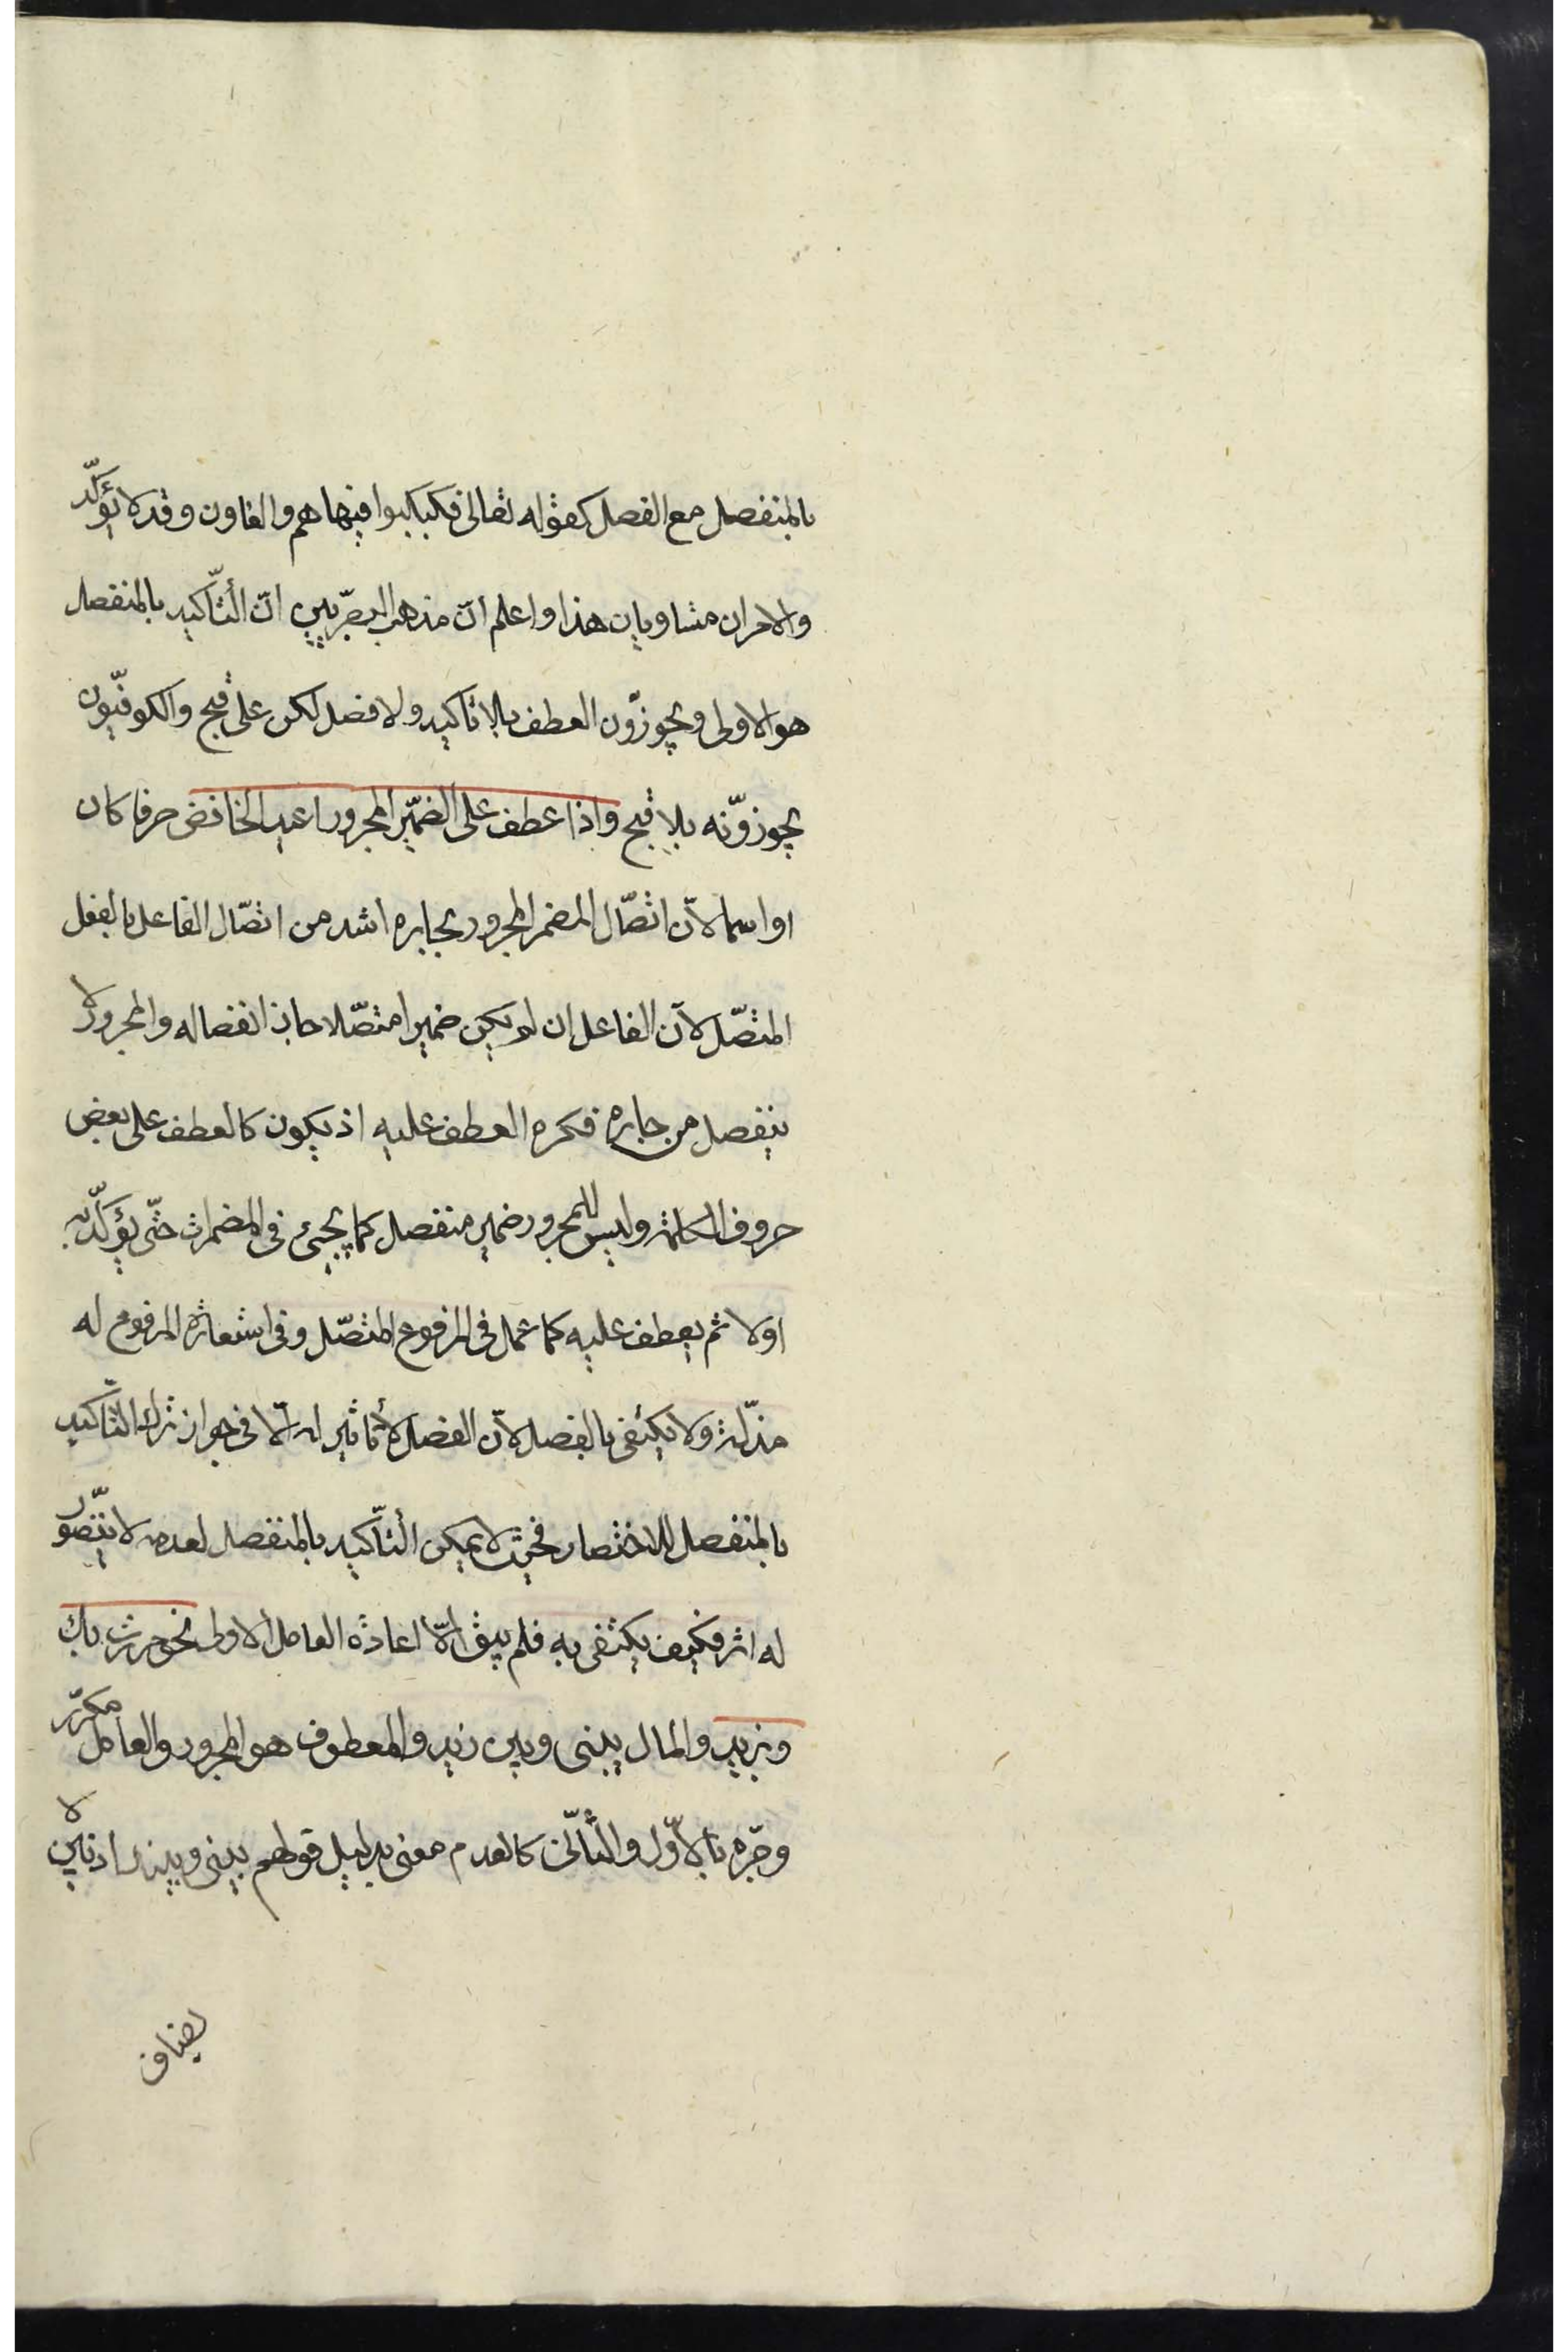 بالمنفصل مع الفصل كقوله تعالى فكبكبوا فيها هم والغاون وقد لا يؤكّد
والامران متساويان هذا واعلم انّ مذهب البصرّيين انّ التأّكيد بالمنفصل
هو الاولى ويجوزّون العطف بلا تاكيد ولا فصل لكن على قبح والكوفيّون
يجوزوّنه بلا قبح واذا عطف على الضمّير المجرور اعيد الخافض حرفا كان
او اسما لانّ اتصّال المضمر المجرور بجاره اشد من اتصّال الفاعل بالفعل
المتصّل لانّ الفاعل ان لم يكن ضميرا متصّلا جاز انفصاله والمجرور لا
ينفصل من جاره فكره العطف عليه اذ يكون كالعطف على بعض
حروف الكلمة وليس للمجرور ضمير منفصل كما يجيئ فى المضمرات حتّى يؤكّد به
اولا ثم يعطف عليه كما عمل فى المرفوع المتصّل وفى استعارة المرفوع له
مذّلة ولا يكتفى بالفصل لانّ الفصل لا تأثير له الّا فى جواز ترك التأّكيد
بالمنفصل للاختصار فحيث لا يمكن التأّكيد بالمنفصل لعدمه لا يتصّور
له اثر فكيف يكتفى به فلم يبق الّا اعادة العامل الاول نحو مررت بك
وبزيد والمال بينى وبين زيد والمعطوف هو المجرور والعامل مكرّر
وجّره بالاوّل والثاّنى كالعدم معنى بدليل قولهم بينى وبينك اذ بين لا
يضاف